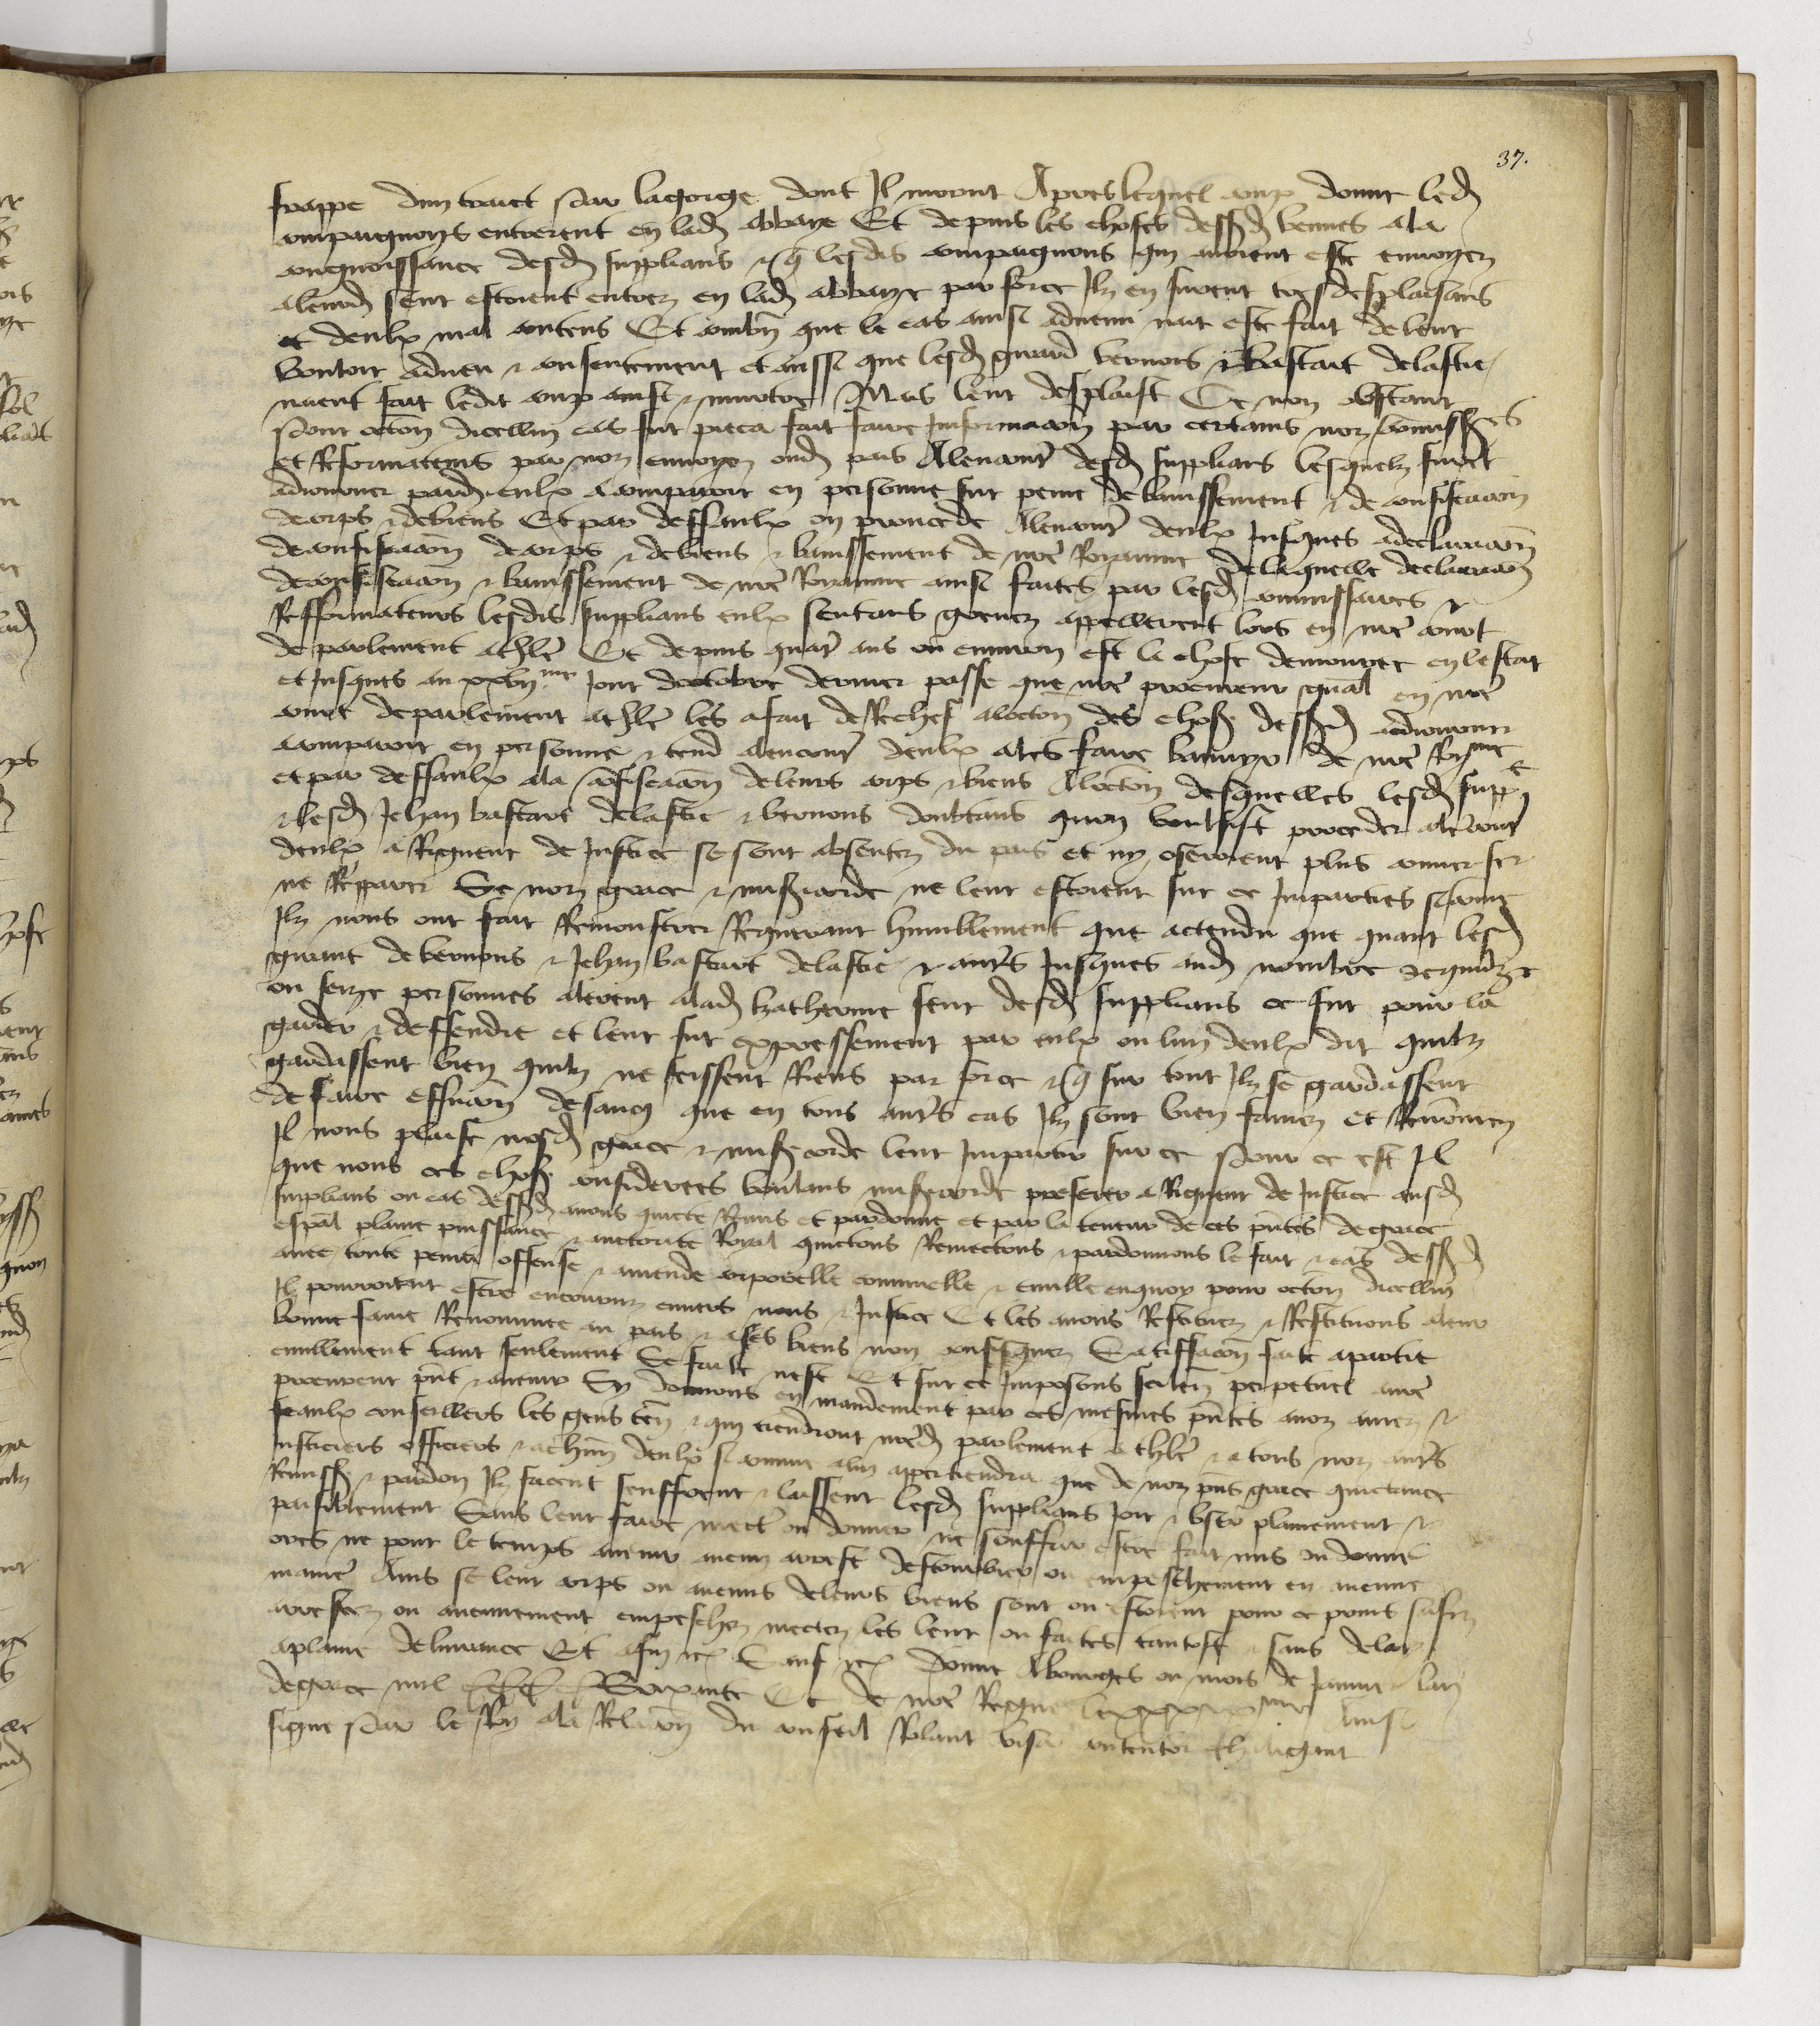 37.
frappe dun trait par lagorge dont Il morut Apres lequel coup donne lesd
compaignons entrerent en lad abbaye Et depuis les choses dessusd venues ala
congnoissance desd supplians & q lesdis compaignons qui avoient este envoyez
aleurd seur estoient entrez en lad abbaye par force Ilz en furent tres desplaisans
et deulx mal contens Et combn que le cas ainsi advenu nait este fait de leur
vouloir adveu & consentement et aussi que lesd guiard vernois & bastart delastic
nient fait ledit coup ainsi & murtre Mais leur desplaist Ce non obstant
pour occon dicellui cas fut pieca fait faire Informacon par certains noz commissres
et Reformateurs par noz envoyez oud pais Alencontr desd supplians lesquelz furent
adiournez pard eulx comparoir en personne sur peine de banissement & de confiscacon
de corps & de biens Et par deffaulx on proceda Alencontr deulx Jusques a declaracion
de confiscacon de corps & debiens & banissement de nre Royaume de laquelle declaracon
de confiscacon & banissement de nre Royaume ainsi faites par lesd commissaires &
Refformateurs lesdis supplians eulx sentans grevez appellerent lors en nre court
de parlement a thle Et depuis quatr ans ou environ est la chose demouree en lestat
et Jusques au xxvjme Jour doctobre dernier passe que nre procureur gnal en nre
court de parlement a thle les a fait de Rechef a locon des choses dessusd adiourner
comparoir en personne & tend alencontr deulx ales faire bannyr de nre Roյme
et par deffaulx ala confiscacon deleurs corps & biens Alocon desquelles lesd supp
& lesd Jehan bastart delastic & vernons doubtans quon voulsist proceder alencontr
deulx a Rigueur de Justice se sont absentez du pais et ny oseroient plus converser
ne Repparer Se noz grace & misericorde ne leur estoient sur ce Imparties sicomme
Ilz nous ont fait Remonstrer Requerant humblement que actendu que quant lesd
guiart de vernons & Jehan bastart delastic & autrs Jusques aud nombre de quinze
ou seize personnes alerent alad katherine seur desd supplians ce fut pour la
garder & deffendre et leur fut expressement par eulx ou lun deulx dit quilz
gardassent bien quilz ne feissent Riens par force & q sur tout Ilz se gardassent
de faire effusion de sang que en tous autrs cas Ilz sont bien famez et Renommez
Il nous plaise nosd grace & misericorde leur Impartir sur ce Pour ce est Il
que nous ces choses considerees voulans misericorde preferer a Rigueur de Justice ausd
supplians ou cas dessusd avons quicte Remis et pardonne et par la teneur de ces pntes de grace
espal plaine puissance & auctorite Royal quictons Remectons & pardonnons le fait & cas dessusd
avec toute peine offense & amende corporelle criminelle & civille enquoy pour occon dicellui
Il pourroient estre encouruz envers nous & Justice Et les avons Restituez & Restituons aleur
bonne fame Renommee au pais & a ses biens non confisquez Satisfacon faite apartie
civillement tant seulement Se faite nest Et sur ce Imposons silen perpetuel anre
procureur pnt & avenir Si donnons en mandement par ces mesmes pntes anoz amez &
feaulx conseillers les gens ten & qui tiendront nred parlement a thle & a tous noz autrs
Justiciers officiers & achun deulx si comme alui appertiendra que de noz pns grace quictance
Remission & pardon Ilz facent seuffrent & laissent lesd supplians Joir & user plainement &
paisiblement Sans leur faire mectr ou donner ne souffrir estre fait mis ou donne
ores ne pour le temps avenir aucun arrest destourbier ou empeschement en aucune
manier Ains se leur corps ou aucuns deleurs biens sont ou estoient pour ce prins saisiz
arrestez ou aucunement empeschez mectez les leur ou faites tantost & sans delay
aplaine delivrance Et afin etc Sauf etc Donne Abourges ou mois de Janvier lan
de grace mil cccc soixante Et de nre Regne le xxxixme Ainsi
signe Par le Roy ala Relacon du conseil Rolant visa contentor chaligaut